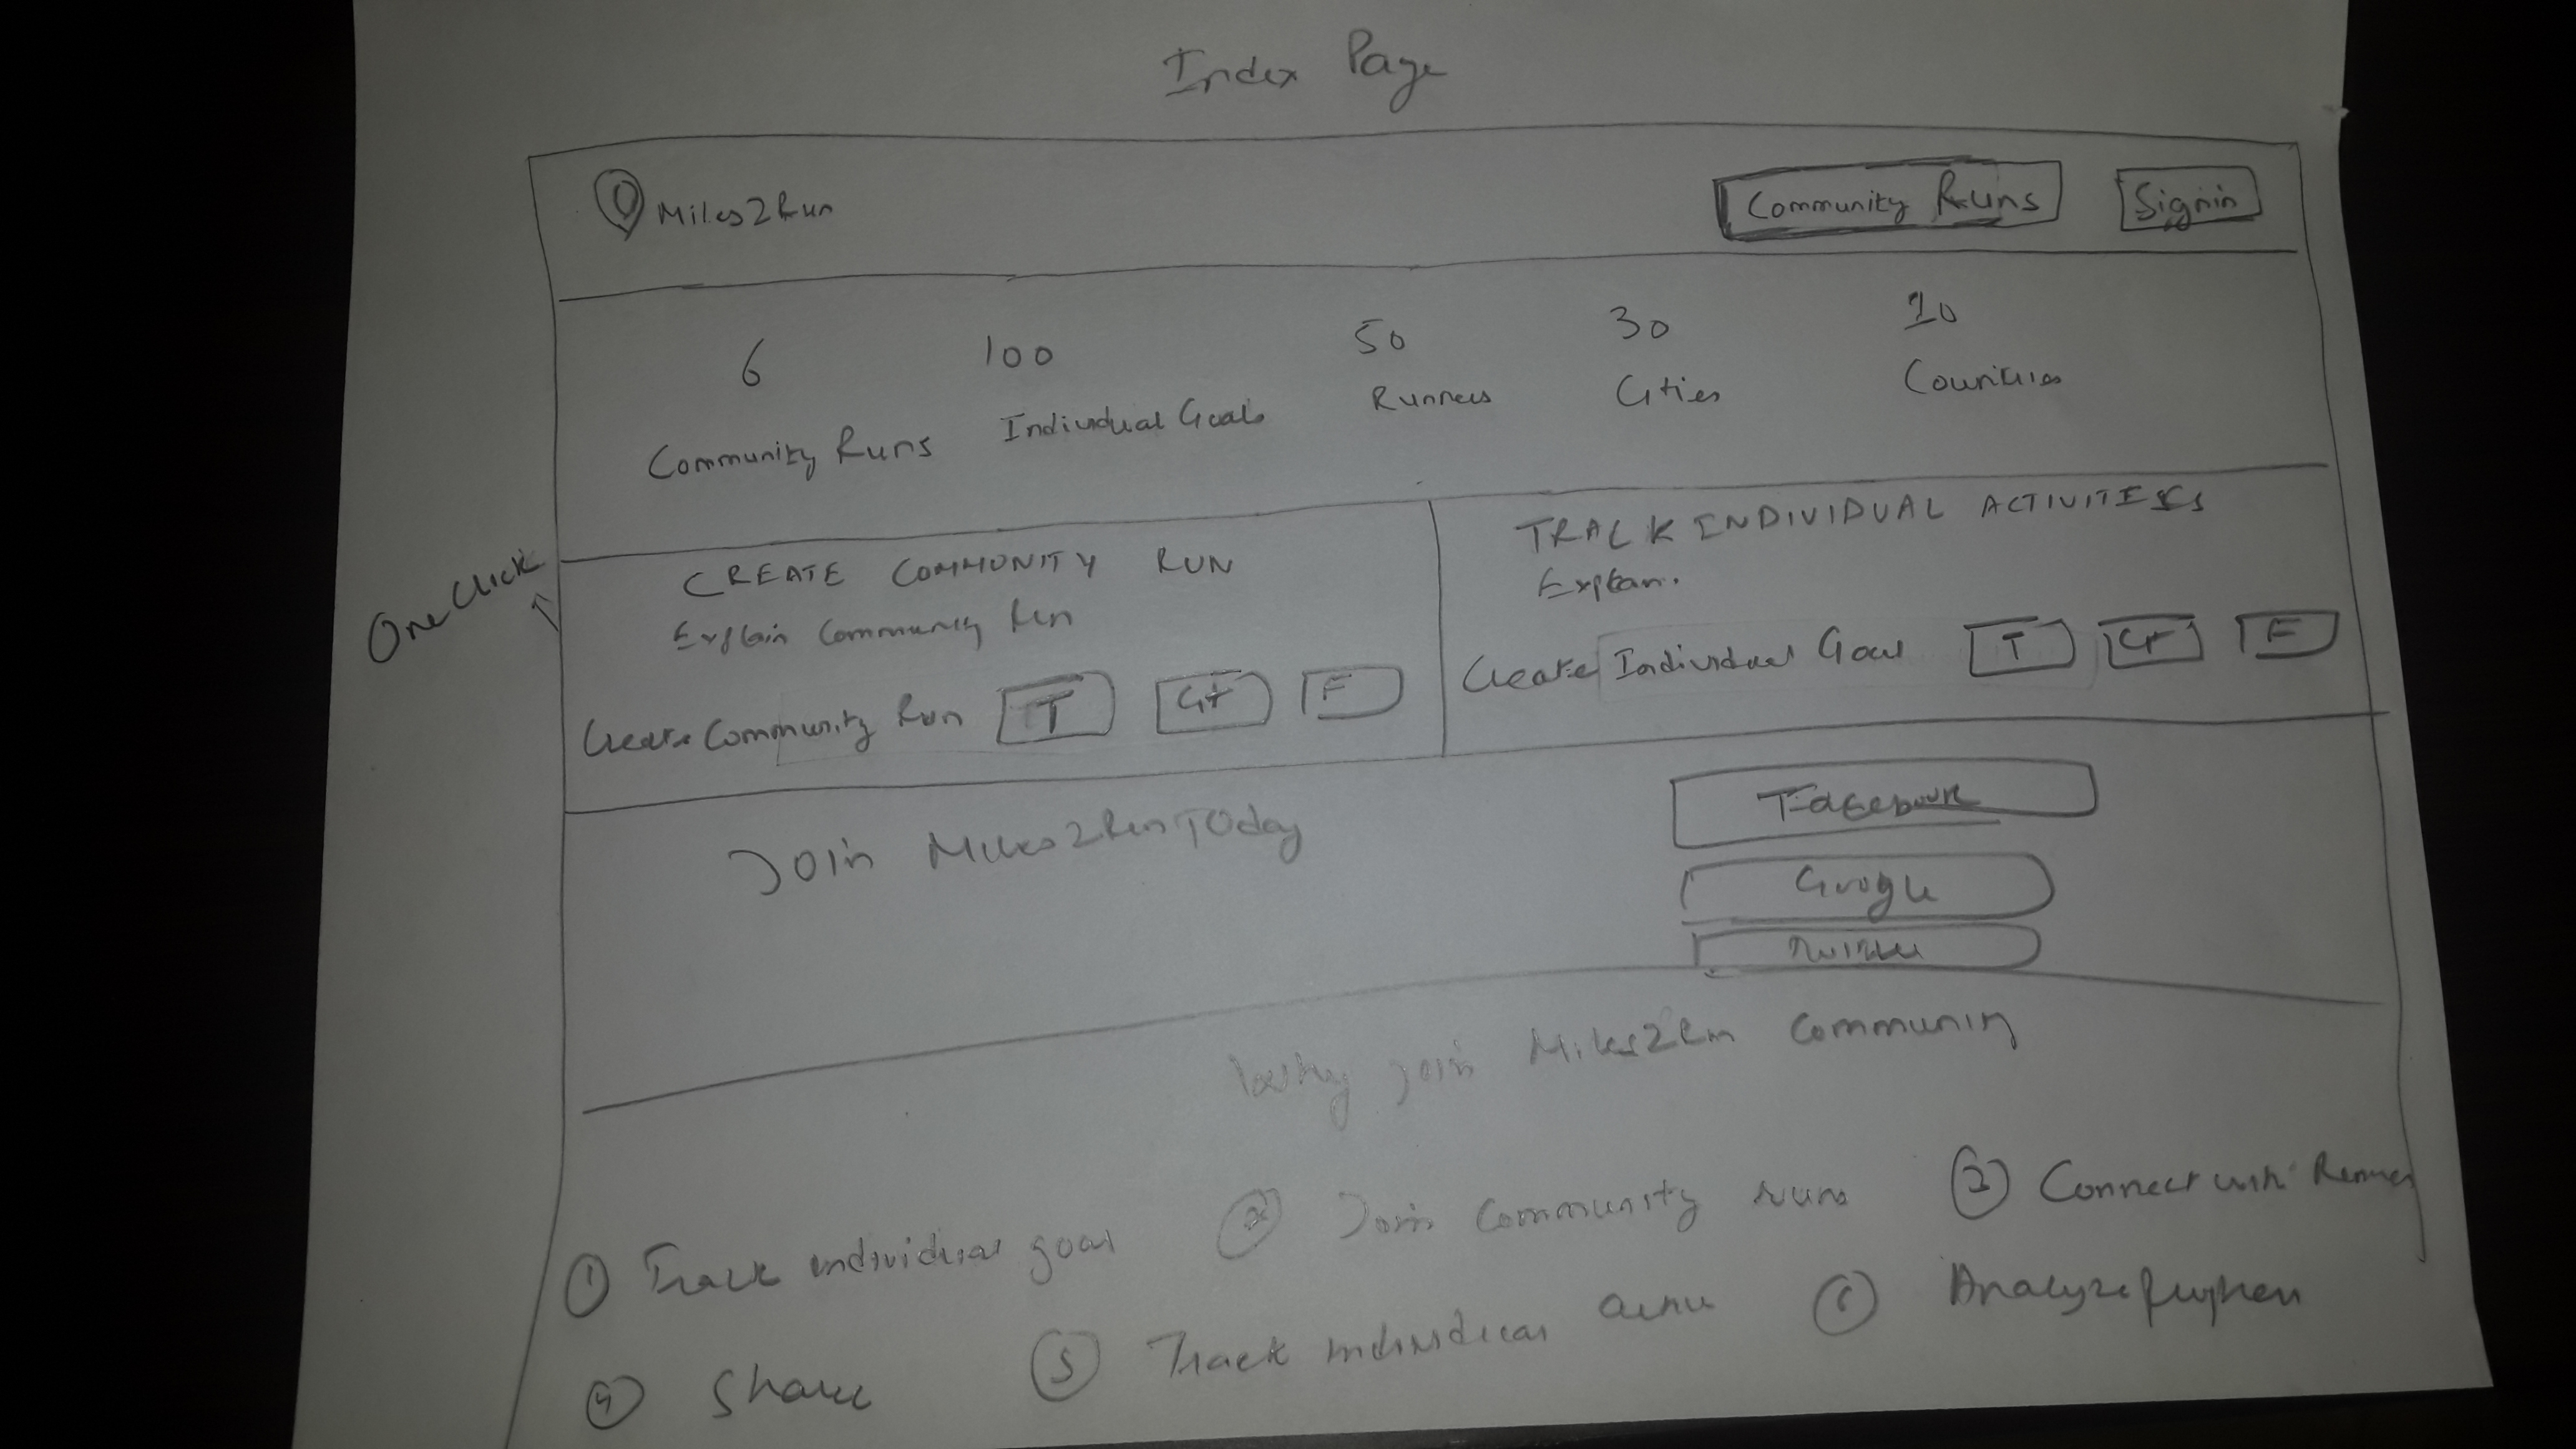 Index Page
Miles2Run
Community Runs
Signin
6
100
50
30
10
Community Runs
Individual Goals
Runners
Cities
Countries
One Click
CREATE COMMUNITY RUN
Explain Community Run
Create Community Run T G+ F
TRACK INDIVIDUAL ACTIVITIES
Explain.
Create Individual Goal T G+ F
Join Miles2Run TOday
Facebook
Google
Twitter
Why join Miles2Run Community
① Track individual goal
② Join Community runs
③ Connect with Runners
④ Share
⑤ Track individual
⑥ Analyze